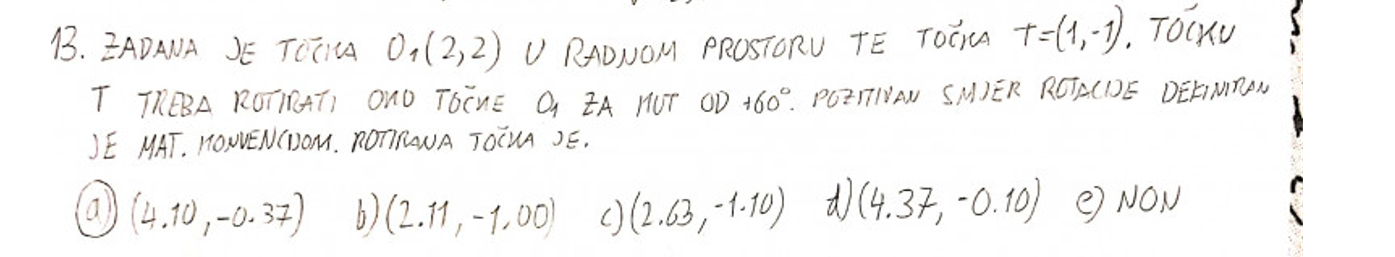 13. ZADANA JE TOČKA O₁(2,2) U RADNOM PROSTORU TE TOČKA T=(1,-1). TOČKU
T TREBA ROTIRATI OKO TOČKE O₁ ZA KUT OD +60°. POZITIVAN SMJER ROTACIJE DEFINIRAN
JE MAT. KONVENCIJOM. ROTIRANA TOČKA JE.
a) (4.10,-0.37) b) (2.11,-1.00) c) (2.63,-1.10) d) (4.37,-0.10) e) NON